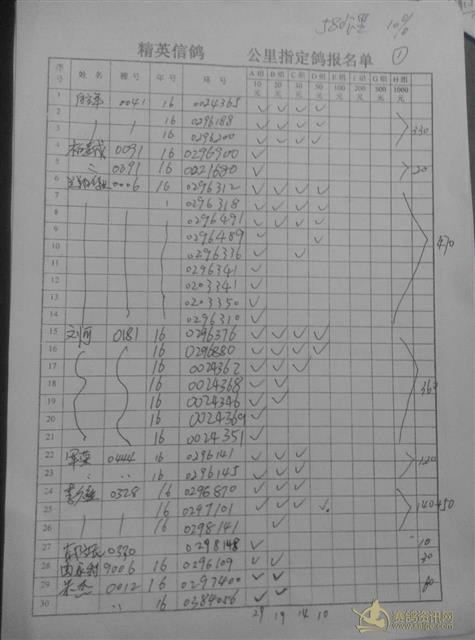 580公里 10%
精英信鸽 公里指定鸽报名单 ①
序号 姓名 棚号 年号 环号 A组10元 B组20元 C组30元 D组50元 E组100元 F组200元 G组500元 H组1000元
1 0041 16 0024365 ✓ ✓ ✓ ✓
2 16 0296188 ✓ ✓ ✓ ✓
3 16 0296200 ✓ ✓ ✓ ✓ 330
4 0091 16 0296900 ✓
5 〃 0091 16 0021680 ✓ 20
6 0006 16 0296312 ✓ ✓ ✓ ✓
7 0296318 ✓ ✓ ✓ ✓
8 0296491 ✓ ✓ ✓ ✓
9 0296489 ✓ ✓
10 0296336 ✓ ✓ 470
11 0296341 ✓
12 0203341 ✓
13 0203350 ✓
14 0296310 ✓
15 刘河 0181 16 0296376 ✓ ✓ ✓ ✓
16 16 0296880 ✓ ✓ ✓ ✓
17 16 0024362 ✓ ✓ ✓
18 16 0024368 ✓ ✓ 360
19 16 0024346 ✓ ✓
20 16 0024369 ✓
21 16 0024351 ✓
22 0444 16 0296141 ✓ ✓ ✓
23 〃 〃 16 0296145 ✓ ✓ ✓ 120
24 0328 16 0296870 ✓ ✓ ✓
25 16 0297101 ✓ ✓ ✓ ✓ 140+50
26 16 0298141 ✓
27 0330 0298148 ✓ 10
28 9006 16 0296109 ✓ ✓ 30
29 0012 16 0297400 ✓ ✓
30 〃 16 0384086 ✓ ✓ 60
29 19 14 10
赛鸽资讯网